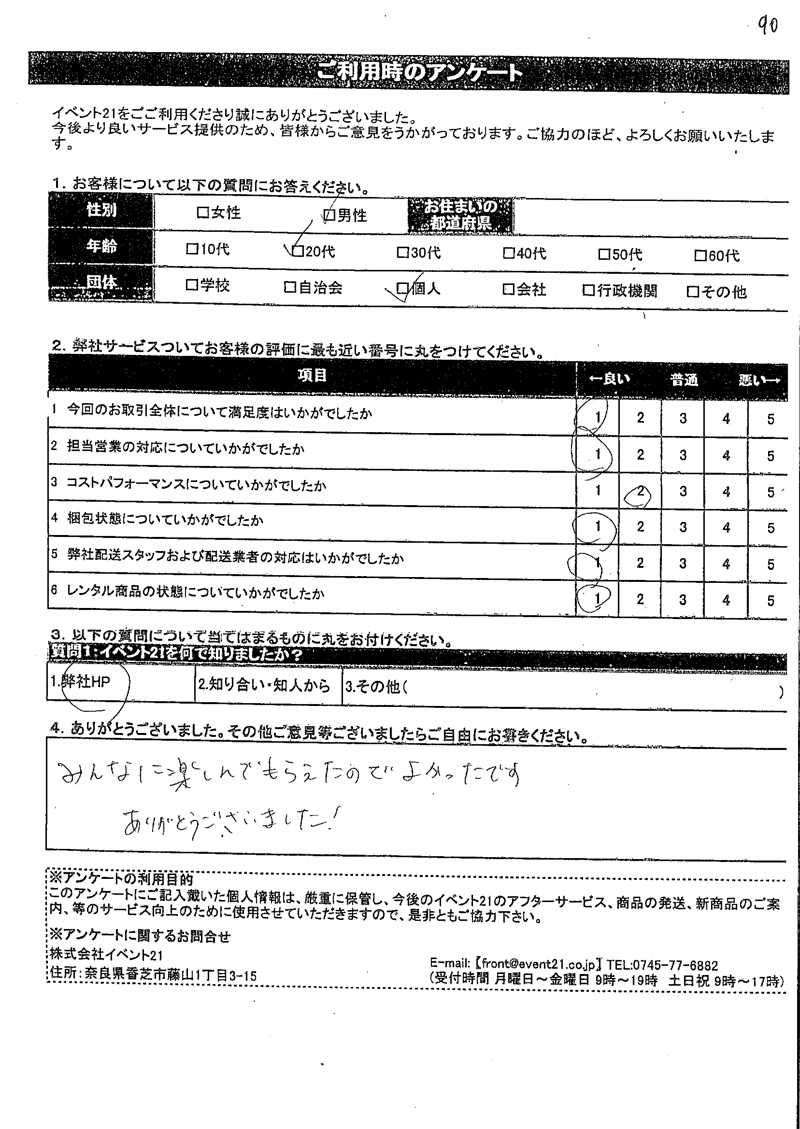 90
ご利用時のアンケート
イベント21をごご利用くださり誠にありがとうございました。
今後より良いサービス提供のため、皆様からご意見をうかがっております。ご協力のほど、よろしくお願いいたします。
1. お客様について以下の質問にお答えください。
性別 □女性 □男性 お住まいの都道府県
年齢 □10代 □20代 □30代 □40代 □50代 □60代
団体 □学校 □自治会 □個人 □会社 □行政機関 □その他
2. 弊社サービスついてお客様の評価に最も近い番号に丸をつけてください。
項目 ←良い 普通 悪い→
1 今回のお取引全体について満足度はいかがでしたか 1 2 3 4 5
2 担当営業の対応についていかがでしたか 1 2 3 4 5
3 コストパフォーマンスについていかがでしたか 1 2 3 4 5
4 梱包状態についていかがでしたか 1 2 3 4 5
5 弊社配送スタッフおよび配送業者の対応はいかがでしたか 1 2 3 4 5
6 レンタル商品の状態についていかがでしたか 1 2 3 4 5
3. 以下の質問について当てはまるものに丸をお付けください。
質問1:イベント21を何で知りましたか?
1.弊社HP 2.知り合い・知人から 3.その他( )
4. ありがとうございました。その他ご意見等ございましたらご自由にお書きください。
みんなに楽しんでもらえたのでよかったです
ありがとうございました!
※アンケートの利用目的
このアンケートにご記入戴いた個人情報は、厳重に保管し、今後のイベント21のアフターサービス、商品の発送、新商品のご案内、等のサービス向上のために使用させていただきますので、是非ともご協力下さい。
※アンケートに関するお問合せ
株式会社イベント21
住所:奈良県香芝市藤山1丁目3-15
E-mail:【front@event21.co.jp】 TEL:0745-77-6882
(受付時間 月曜日~金曜日 9時~19時 土日祝 9時~17時)